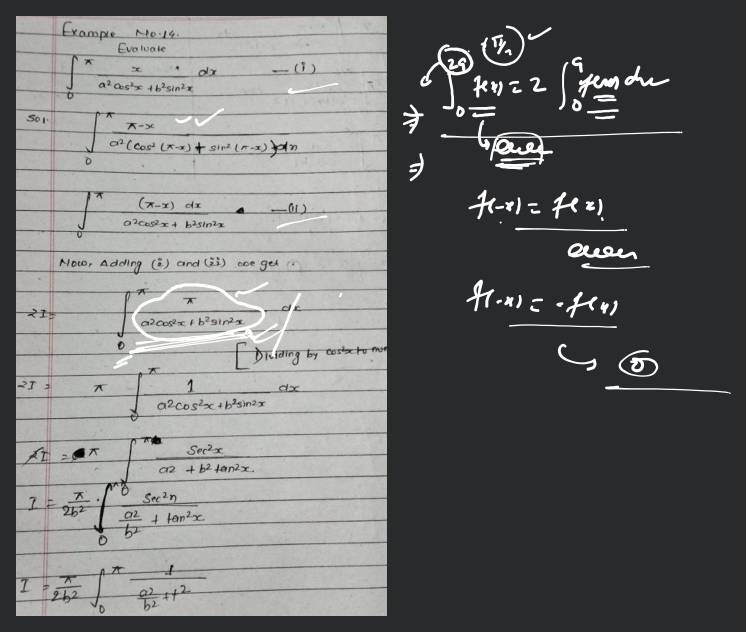 Example No.14.
Evaluate
∫₀^π x / (a²cos²x + b²sin²x) dx — (i)
Sol. ∫₀^π (π-x) / (a²(cos²(π-x) + sin²(π-x)) dx
∫₀^π (π-x) dx / (a²cos²x + b²sin²x) — (ii)
Now, Adding (i) and (ii) we get
2I = ∫₀^π π / (a²cos²x + b²sin²x) dx
[Dividing by cos²x to
2I = π ∫₀^π 1 / (a²cos²x + b²sin²x) dx
2I = π ∫₀^π Sec²x / (a² + b²tan²x)
I = π/2b² ∫₀^π Sec²x / (a²/b² + tan²x)
I = π/2b² ∫₀^π 1 / (a²/b² + t²)
(π/2)
∫₀^2a f(x) = 2 ∫₀^a f(x) dx
⇒
even
⇒
f(-x) = f(x)
even
f(-x) = -f(x)
0